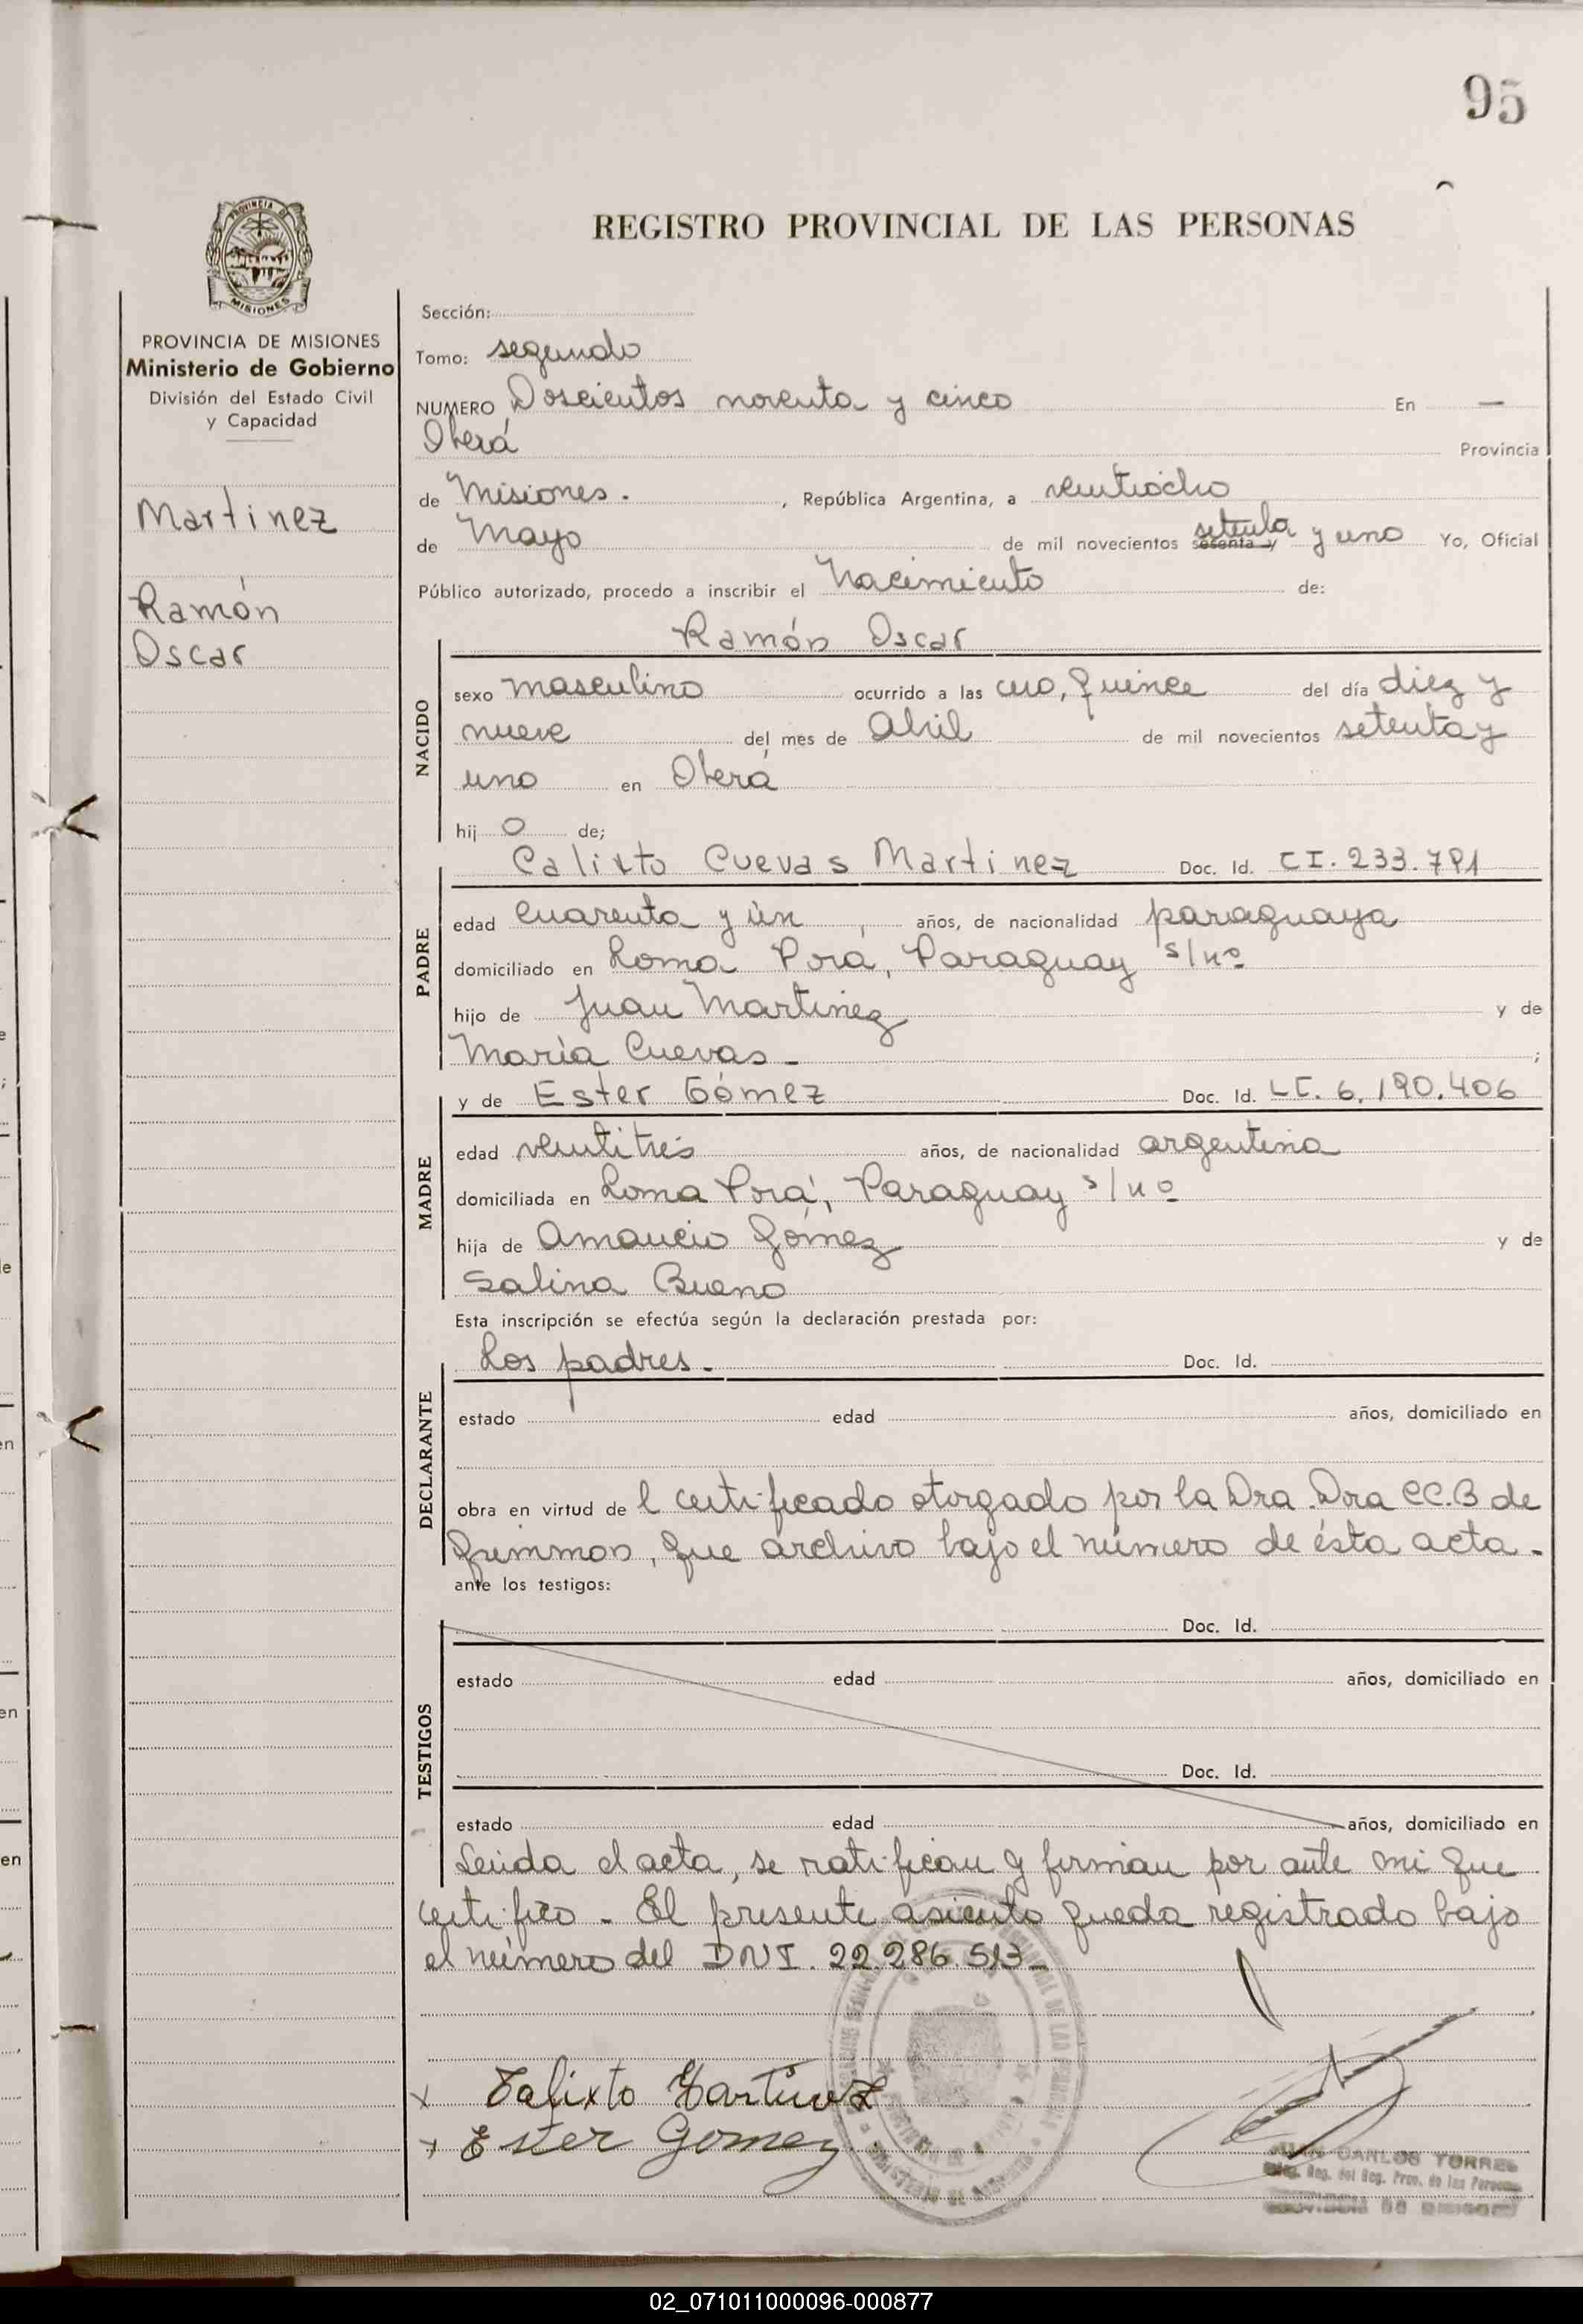 95
REGISTRO PROVINCIAL DE LAS PERSONAS
PROVINCIA DE
MISIONES
PROVINCIA DE MISIONES
Ministerio de Gobierno
División del Estado Civil
y Capacidad
Martinez
Ramón
Oscar
Sección:
Tomo: segundo
NUMERO Doscientos noventa y cinco En —
Oberá Provincia
de Misiones. , República Argentina, a veintiocho
de Mayo de mil novecientos sesenta y setenta y uno Yo, Oficial
Público autorizado, procedo a inscribir el Nacimiento de:
Ramón Oscar
NACIDO
sexo masculino ocurrido a las cero, quince del día diez y
nueve del mes de Abril de mil novecientos setenta y
uno en Oberá
hij o de;
PADRE
Calixto Cuevas Martinez Doc. Id. CI. 233.791
edad cuarenta y ún años, de nacionalidad paraguaya
domiciliado en Loma Porá, Paraguay s/nº
hijo de Juan Martinez y de
María Cuevas - ;
MADRE
y de Ester Gómez Doc. Id. LC. 6.190.406
edad veintitrés años, de nacionalidad argentina
domiciliada en Loma Porá, Paraguay s/nº
hija de Amancio Gómez y de
Salina Bueno
Esta inscripción se efectúa según la declaración prestada por:
DECLARANTE
Los padres. Doc. Id.
estado edad años, domiciliado en
obra en virtud de l certificado otorgado por la Dra. Dora CC.B de
que archivo bajo el número de ésta acta -
ante los testigos:
TESTIGOS
Doc. Id.
estado edad años, domiciliado en
Doc. Id.
estado edad años, domiciliado en
Leída el acta, se ratifican y firman por ante mi que
certifico - El presente asiento queda registrado bajo
el número del DNI. 22.286.513 -
x Calixto Martinez
x Ester Gomez
JUAN CARLOS TORRES
Reg. del Reg. Prov. de las Personas
PROVINCIA DE MISIONES
02_071011000096-000877